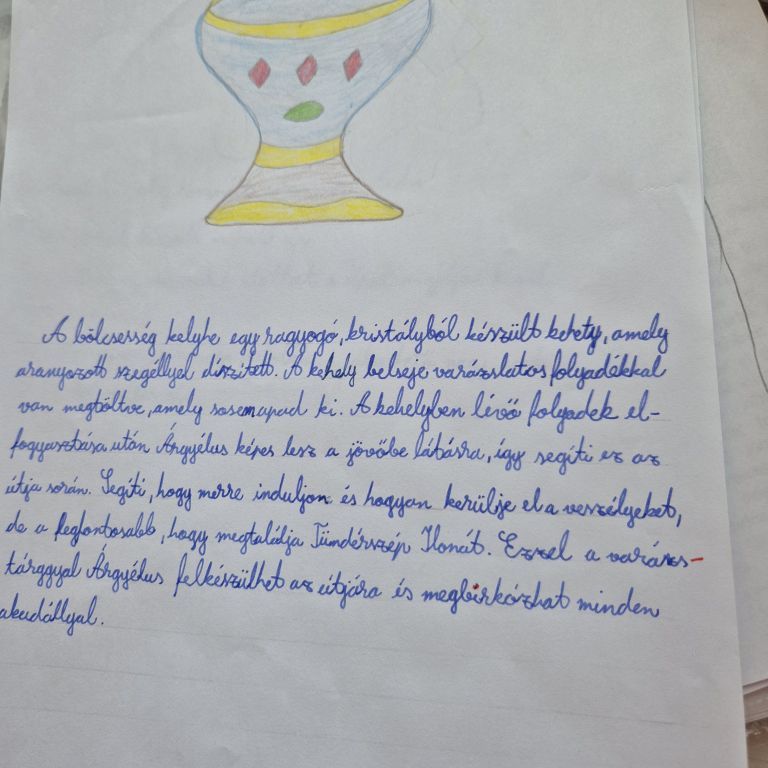 A bölcsesség kelyhe egy ragyogó, kristályból készült kehely, amely
aranyozott szegéllyel díszített. A kehely belseje varázslatos folyadékkal
van megtöltve, amely sosem apad ki. A kehelyben lévő folyadék el-
fogyasztása után Árgyélus képes lesz a jövőbe látásra, így segíti ez az
útja során. Segíti, hogy merre induljon és hogyan kerülje el a veszélyeket,
de a legfontosabb, hogy megtalálja Tündérszép Ilonát. Ezzel a varázs-
tárggyal Árgyélus felkészülhet az útjára és megbirkózhat minden
akadállyal.